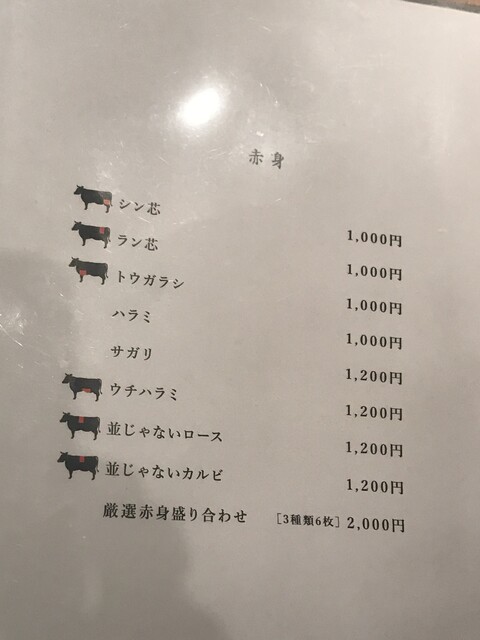 赤身
シン芯 1,000円
ラン芯 1,000円
トウガラシ 1,000円
ハラミ 1,000円
サガリ 1,200円
ウチハラミ 1,200円
並じゃないロース 1,200円
並じゃないカルビ 1,200円
厳選赤身盛り合わせ [3種類6枚] 2,000円